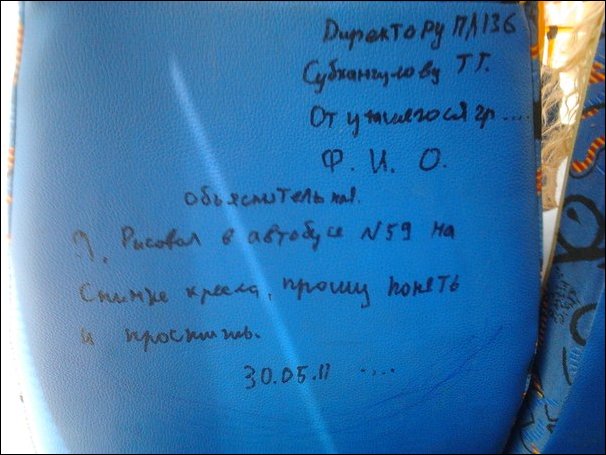 Директору ПЛ136
Субхангулову Т Г.
От учащегося гр....
Ф. И. О.
объяснительная.
Я. Рисовал в автобусе N59 на
спинке кресла, прошу понять
и простить.
30.05.11 ....